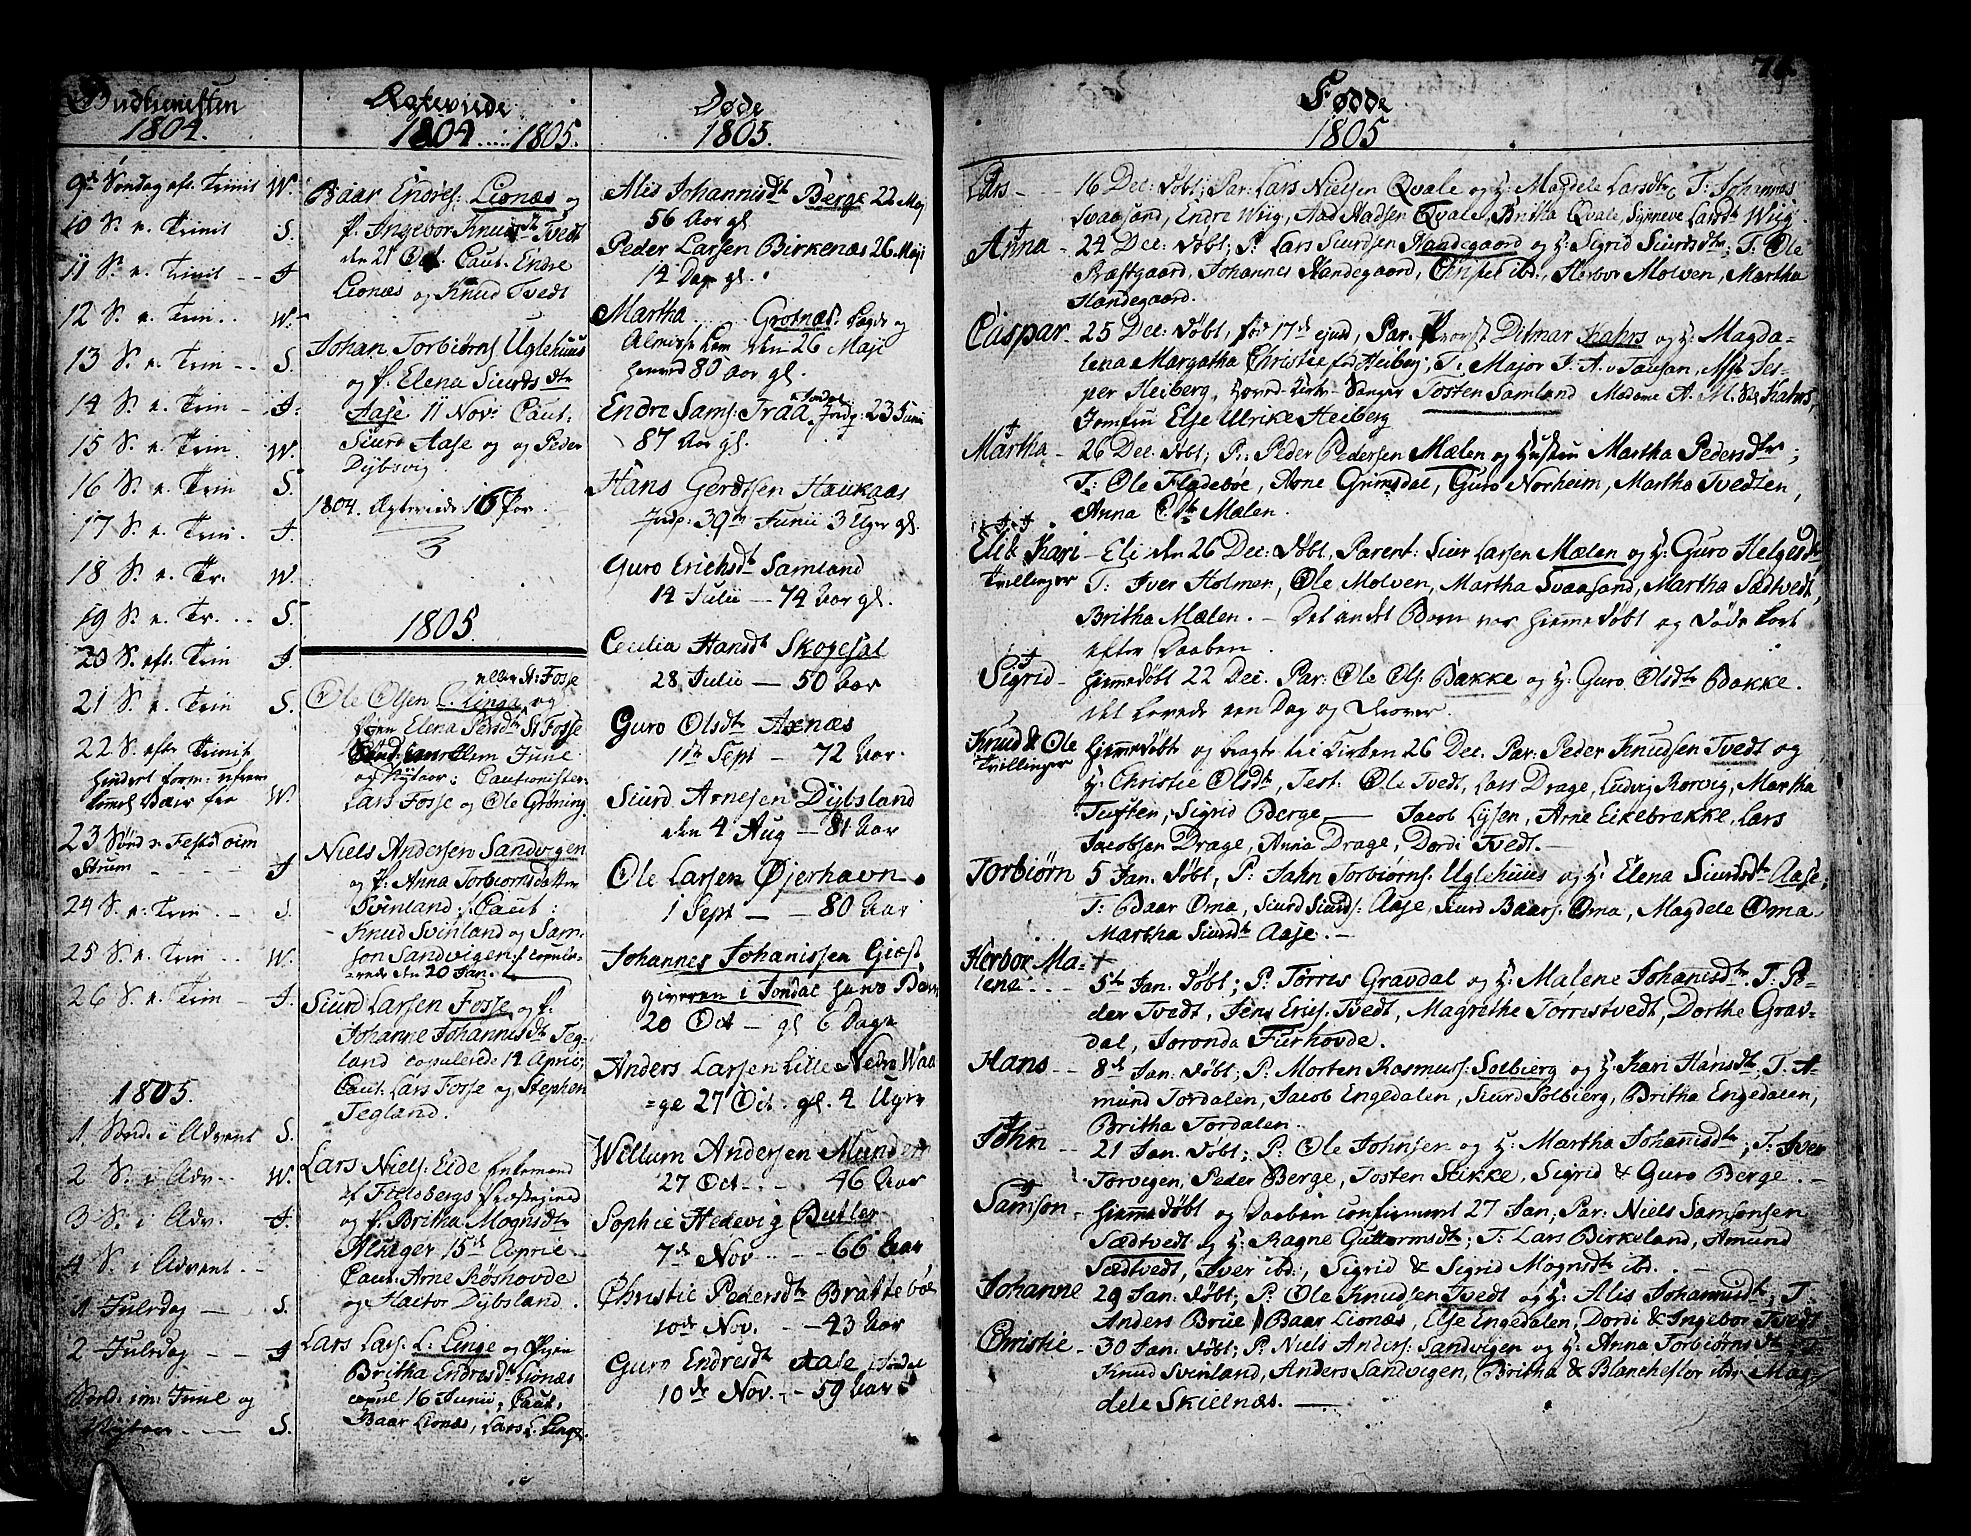 Gudtienesten
1804.
9de Søndag eft. Trinit W.
10 S. e. Trinit S.
11 S. e. Trinit - - J.
12 S. e. Trin. . W.
13 S. e. Trin - - S.
14 S. e. Trin - J.
15 S. e. Trin. W.
16 S. e. Trin S.
17 S. e. Trin. J.
18 S. e. Tr. W.
19 S. e. Tr. . . S.
20 S. eft. Trin J.
21 S. e. Trin S.
22 S. efter Trinit
hindret form:
W.
23 Sønd
Strum - - - - J
24 S. e. Trin . - S.
25 S. e. Trin - - W.
26 S. e. Trin - J.
1805.
1 Sønd. i Advent S.
2 S. i Adv. . W.
3 S. i Adv. - J.
4 S. i Advent. - -
1 Juledag - - S.
2 Juledag - - J
Sønd. im: Juul og
Nytaar - - - S.
Egteviede
1804.....1805.
Baar Endres: Lionæs og
P. Ingebor Knudsdtr Tvedt
den 21 Oct. Caut. Endre
Lionæs og Knud Tvedt
Johan Torbiørns Uglehuus
og P. Elena Siurdsdtr
Aase 11 Nov: Caut.
Siurd Aase og og Peder
Dybsvig.
1804. Egteviede 16 Par.
1805
eller N: Fosse
Ole Olsen L. Linga og
Pigen Elena Persdtr N Fosse
Sønd: mellem Juul
og Nytaar; Cautionister
Lars Fosse og Ole Grøning
Niels Andersen Sandvigen
og P. Anna Torbiornsdatter
Svinland; Caut:
Knud Svinland og Sam-
son Sandvigen; copule-
rede den 20 Jan.
Siurd Larsen Fosse og P.
Johanne Johannisdtr Teg-
land copulerede 14 April;
Caut. Lars Fosse og Stephen
Tegland.
Lars Niels: Eide Enkemand
af Fieldbergs Præstegield
og P. Britha Mognsdtr
Alsager 15de April
Caut: Arne Røshovde
og Haltor Dybsland.
Lars Lars: L: Linge og Pigen
Britha Endresdtr Lionæs
copul 16 Junii; Caut.
Baar Lionæs, Lars L. Linge
Døde
1805.
Alis Johannisdtr Berge 22 Maj
56 Aar gl
Peder Larsen Birkenæs 26 Maji
14 Dage gl.
Martha . . . Grotnæs. Sogde og
Almisse Lem den 26 Maji
henved 80 Aar gl.
Endre Sams: Traa i Jondal Indp: 23 Junii
87 Aar gl.
Hans Gerdtsen Haukaas
Indp: 30te Junii 3 Uger gl.
Guro Erichsdtr Samland
14 Julii - 74 Aar gl.
Cecilia Hansdtr Skogesal
28 Julii - 50 Aar
Guro Olsdtr Axnæs
11te Sept - 72 Aar.
Siurd Arnesen Dybsland
den 4 Aug - 81 Aar
Ole Larsen Øjerhavn.
1 Sept - - 80 Aar
Johannes Johanissen Giæst
giveren i Jondal hans Barn
20 Oct - gl 6 Dage
Anders Larsen Lille Nedre Waa
=ge 27 Oct. gl. 4 Uger
Willum Andersen Mundem
27 Oct - - 46 Aar
Sophie Hedevig Butler
7de Nov - - 66 Aar
Christie Pedersdtr Brattebøe
10de Nov. - - 43 Aar
Guro Endresdtr Aase i Jondal
10de Nov. - - 59 Aar
74.
Fødde
1805
Lars - - 16 Dec: døbt; Par: Lars Nielsen Qvale og H: Magdele Larsdtr; T: Johannes
Svaasand, Endre Wiig, Aad Aadsen Qvale, Britha Qvale, Synneve Larsdtr Wiig.
Anna - 24 Dec: døbt; P: Lars Siurdsen Handegaard og H: Sigrid Siurdsdtr; T: Ole
Præstgaard, Johannes Handegaard, Christei ibd:, Herbor Molven, Martha
Handegaard.
Caspar - 25 Dec: døbt, fød 17de ejusd, Par. Provst Ditmar Kahrs og H: Magda-
lena Margatha Christie fød Heiberg; T: Major F. A. v Tausan, Mstr Jes-
per Heiberg, Hæred. Kirke-Sanger Tosten Samland Madame A. M. Sal Kahrs,
Jomfru Else Ulrike Heiberg
Martha - 26 Dec: døbt; P: Peder Pedersen Mælen og Hustru Martha Pedersdtr;
T: Ole Fladebøe, Arne Grimsdal, Guro Norheim, Martha Tvedten,
Anna Elsdtr Mælen.
Eli & Kari - Eli den 26 Dec: døbt, Parent: Siur Larsen Mælen og H: Guro Helgesdtr
Tvillinger T: Iver Holmen, Ole Molven, Martha Svaasand, Martha Sædtvedt,
Britha Mælen. - Det andet Barn var hiemedøbt og døde kort
efter Daaben.
Sigrid - hiemedøbt 22 Dec. Par: Ole Ols: Bakke og H: Guro Olsdtr Bakke.
det levede een Dag og derover.
Knud & Ole hiemedøbte og bragte til Kirken 26 Dec. Par: Peder Knudsen Tvedt og
Tvillinger H: Christie Olsdtr, Test: Ole Tvedt, Lars Drage, Ludvig Rorvig, Martha
Tuften, Sigrid Berge - Jacob Lysen, Arne Eikebrække, Lars
Jacobsen Drage, Anna Drage, Dordi Tvedt. -
Torbiørn 5 Jan. døbt, P: Jahn Torbiørns: Uglehuus og H: Elena Siursdtr Aase;
T: Baar Oma, Siurd Siurds: Aase, Siurd Baars: Oma, Magdele Oma
Martha Siursdtr Aase. -
Herbor Ma-
lene - - 5te Jan. døbt; P: Tørris Gravdal og H: Malene Johanisdtr. T: Pe-
der Tvedt, Jens Erics: Tvedt, Magrethe Torristvedt, Dorthe Grav-
dal, Joronda Furhovde.
Hans - - 8de Jan: døbt; P: Morten Rasmuss: Solbierg og H: Kari Hansdtr; T: A-
mund Tordalen, Jacob Engedalen, Siurd Solbierg, Britha Engedalen,
Britha Tordalen.
John - - 21 Jan. døbt; P: Ole Johnsen og H: Martha Johanisdtr; T: Iver
Torvigen, Peder Berge, Tosten Stikke, Sigrid & Guro Berge. -
Samson - hiemedøbt og Daaben confirmert 27 Jan; Par: Niels Samsonsen
Sædtvedt og H: Ragne Guttormsdtr; T: Lars Birkeland, Amund
Sædtvedt, Iver ibd:, Sigrid & Sigrid Mognsdtr ibd.
Johanne 29 Jan: døbt; P: Ole Knudsen Tvedt og H: Alis Johannisdtr; T:
Anders Brue, Baar Lionæs, Else Engedalen, Dordi & Ingebor Tvedt
Christie - 30 Jan: døbt; P: Niels Anders: Sandvigen og H: Anna Torbiørnsdtr T
Knud Svinland, Anders Sandvigen, Britha & Blancheflor ibd: Mag-
dele Skielnæs. -